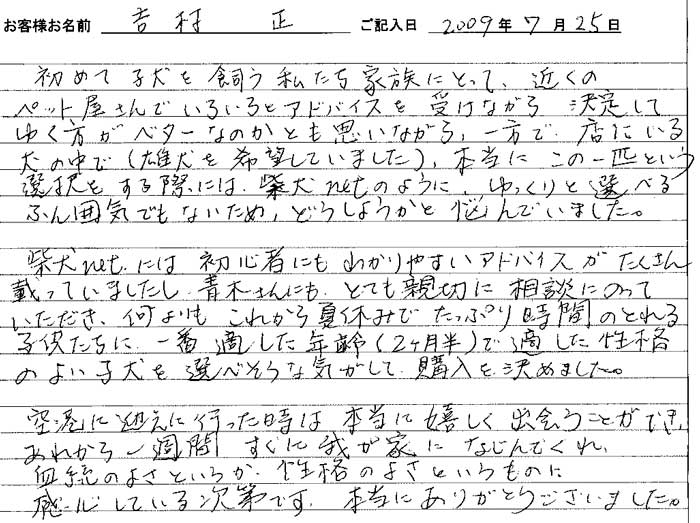 お客様お名前 吉村 正 ご記入日 2009年7月25日
初めて子犬を飼う私たち家族にとって、近くの
ペット屋さんでいろいろとアドバイスを受けながら決定して
ゆく方がベターなのかとも思いながら、一方で、店にいる
犬の中で(雄犬を希望していました)、本当にこの一匹という
選択をする際には、柴犬netのように、ゆっくりと選べる
ふん囲気でもないため、どうしようかと悩んでいました。
柴犬net.には初心者にもわかりやすいアドバイスがたくさん
載っていましたし、青木さんにも、とても親切に相談にのって
いただき、何よりもこれから夏休みでたっぷり時間のとれる
子供たちに、一番適した年齢(2ヶ月半)で適した性格
のよい子犬を選べそうな気がして、購入を決めました。
空港に迎えに行った時は本当に嬉しく出会うことができ、
あれから一週間すぐに我が家になじんでくれ、
血統のよさというか、性格のよさというものに
感心している次第です。本当にありがとうございました。